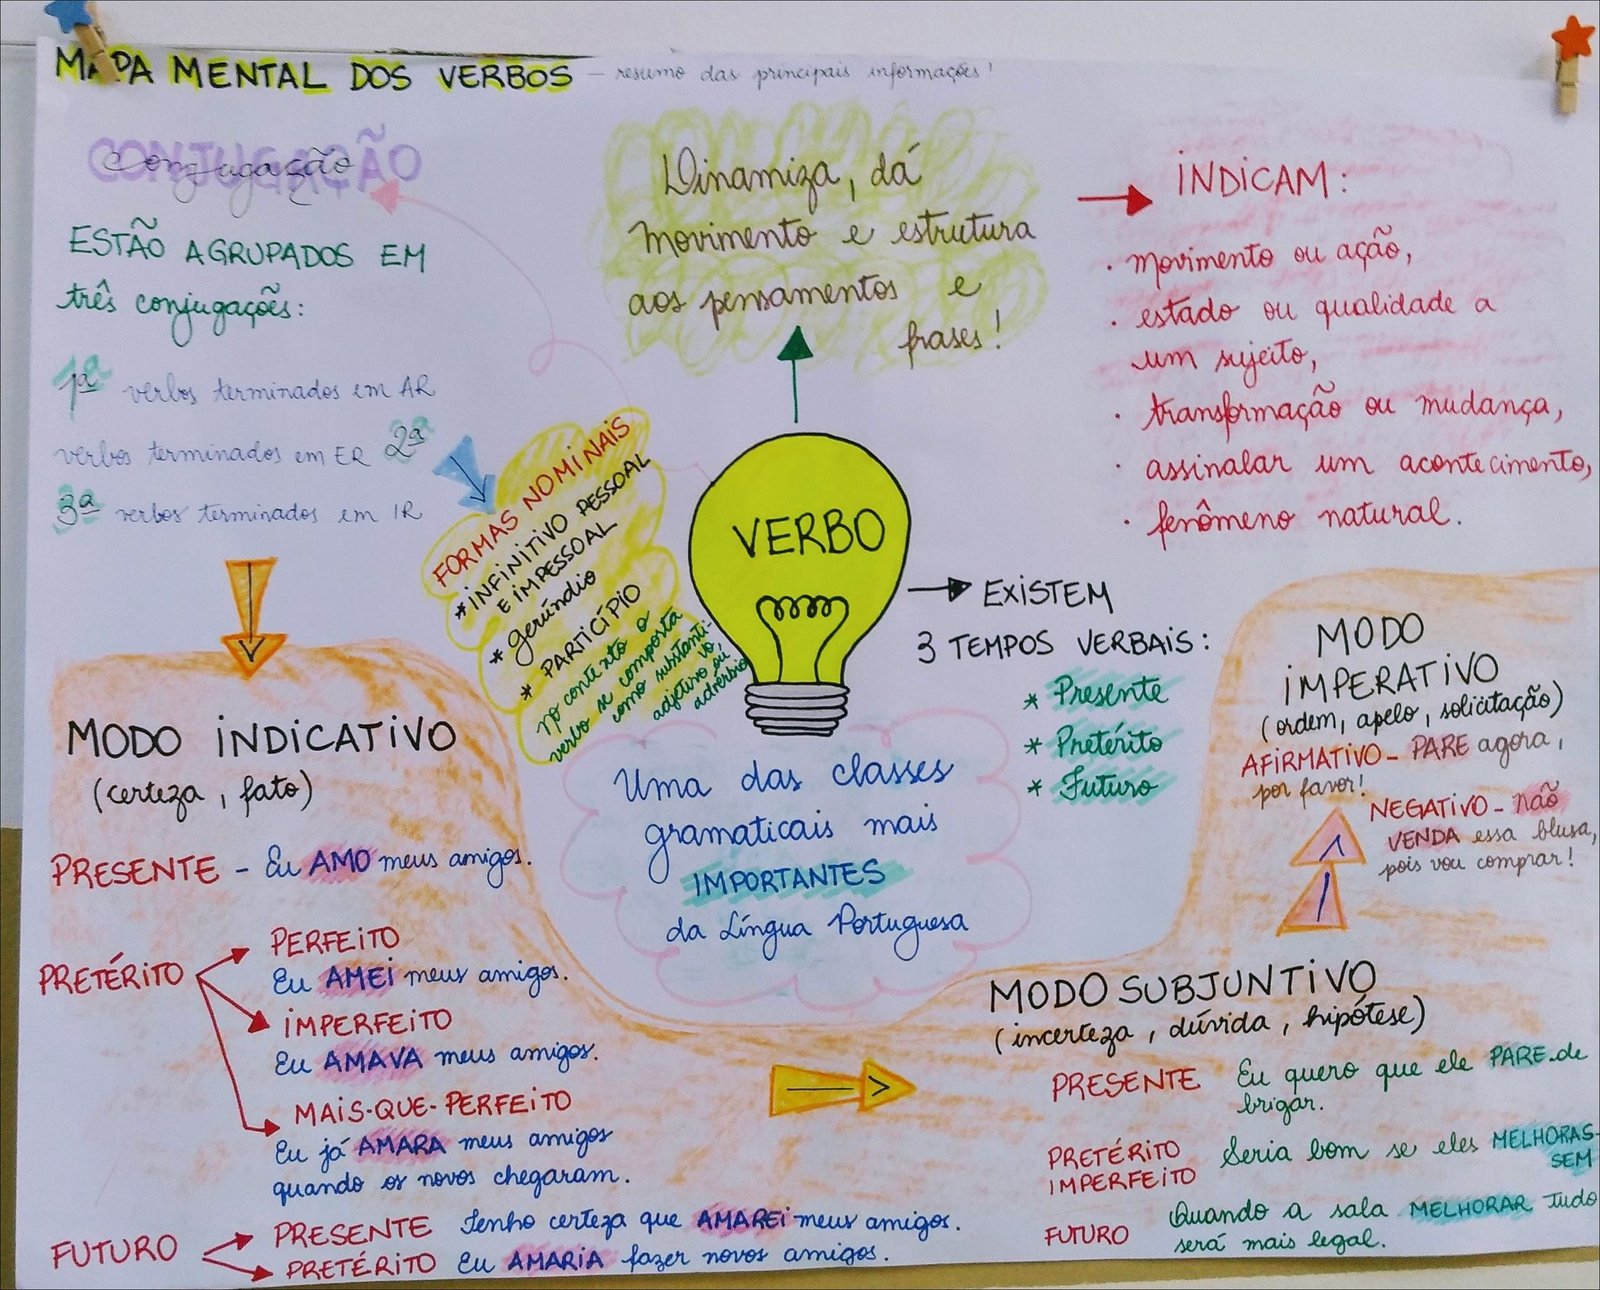 MAPA MENTAL DOS VERBOS – resumo das principais informações!
CONJUGAÇÃO
Conjugação
ESTÃO AGRUPADOS EM
três conjugações:
1ª verbos terminados em AR
verbos terminados em ER 2ª
3ª verbos terminados em IR
FORMAS NOMINAIS
* INFINITIVO PESSOAL
E IMPESSOAL
* gerúndio
* PARTICÍPIO
no contexto o
verbo se comporta
como substanti-
vo
adjetivo ou
advérbio
Dinamiza, dá
movimento e estrutura
aos pensamentos e
frases!
INDICAM:
· movimento ou ação,
· estado ou qualidade a
um sujeito,
· transformação ou mudança,
· assinalar um acontecimento,
· fenômeno natural.
VERBO
EXISTEM
3 TEMPOS VERBAIS:
* Presente
* Pretérito
* Futuro
Uma das classes
gramaticais mais
IMPORTANTES
da Língua Portuguesa
MODO INDICATIVO
(certeza, fato)
PRESENTE - Eu AMO meus amigos.
PRETÉRITO
PERFEITO
Eu AMEI meus amigos.
IMPERFEITO
Eu AMAVA meus amigos.
MAIS-QUE-PERFEITO
Eu já AMARA meus amigos
quando os novos chegaram.
FUTURO
PRESENTE Tenho certeza que AMAREI meus amigos.
PRETÉRITO Eu AMARIA fazer novos amigos.
MODO SUBJUNTIVO
(incerteza, dúvida, hipótese)
PRESENTE Eu quero que ele PARE de
brigar.
PRETÉRITO
IMPERFEITO
Seria bom se eles MELHORAS-
SEM
FUTURO Quando a sala MELHORAR tudo
será mais legal.
MODO
IMPERATIVO
(ordem, apelo, solicitação)
AFIRMATIVO - PARE agora,
por favor!
NEGATIVO - não
VENDA essa blusa,
pois vou comprar!